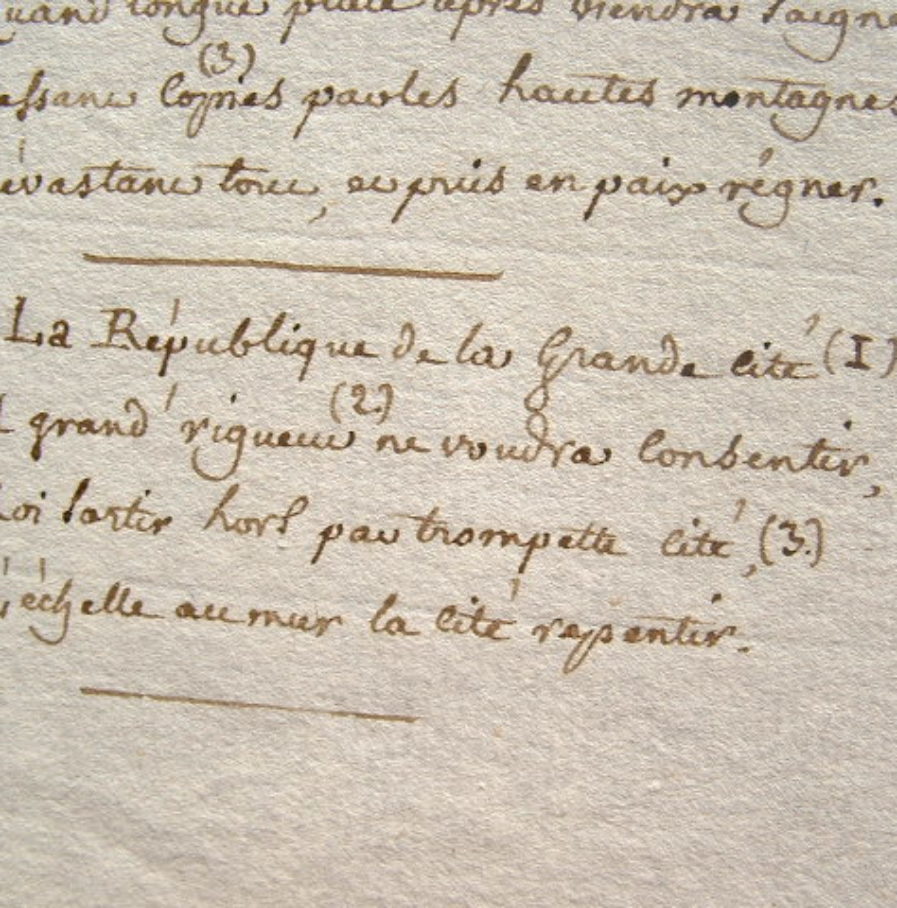 quand longue pluie après viendra saigne
essant copies par les hautes montagnes
évastant tout, et puis en paix régner.
La République de la Grande Cité (I)
grand rigueur (2.) ne voudra Consentir,
Roi sortir hors par trompette cité, (3.)
L'échelle au mur la Cité repentir.